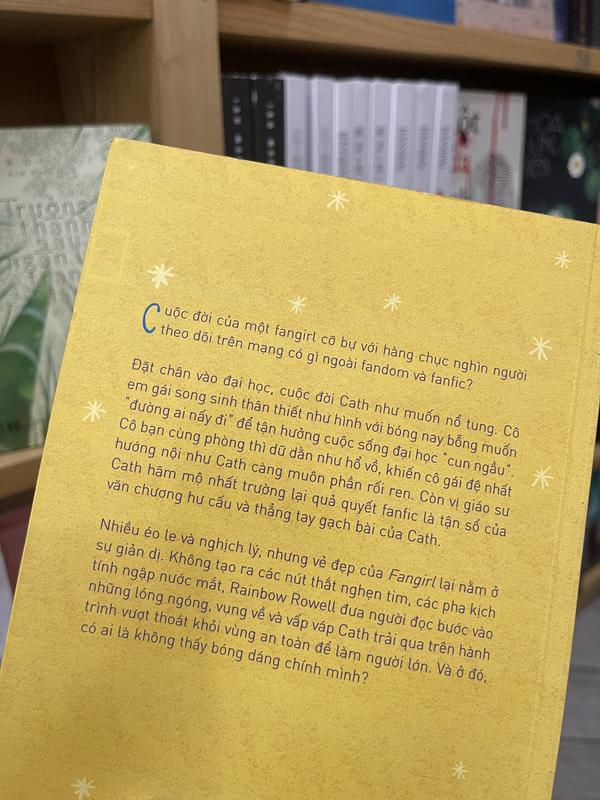 Trưởng
thành
Cuộc đời của một fangirl cỡ bự với hàng chục nghìn người
theo dõi trên mạng có gì ngoài fandom và fanfic?
Đặt chân vào đại học, cuộc đời Cath như muốn nổ tung. Cô
em gái song sinh thân thiết như hình với bóng nay bỗng muốn
“đường ai nấy đi” để tận hưởng cuộc sống đại học “cun ngầu”.
Cô bạn cùng phòng thì dữ dằn như hổ vồ, khiến cô gái đệ nhất
hướng nội như Cath càng muôn phần rối ren. Còn vị giáo sư
Cath hâm mộ nhất trường lại quả quyết fanfic là tận số của
văn chương hư cấu và thẳng tay gạch bài của Cath.
Nhiều éo le và nghịch lý, nhưng vẻ đẹp của Fangirl lại nằm ở
sự giản dị. Không tạo ra các nút thắt nghẹn tim, các pha kịch
tính ngập nước mắt, Rainbow Rowell đưa người đọc bước vào
những lóng ngóng, vụng về và vấp váp Cath trải qua trên hành
trình vượt thoát khỏi vùng an toàn để làm người lớn. Và ở đó,
có ai là không thấy bóng dáng chính mình?